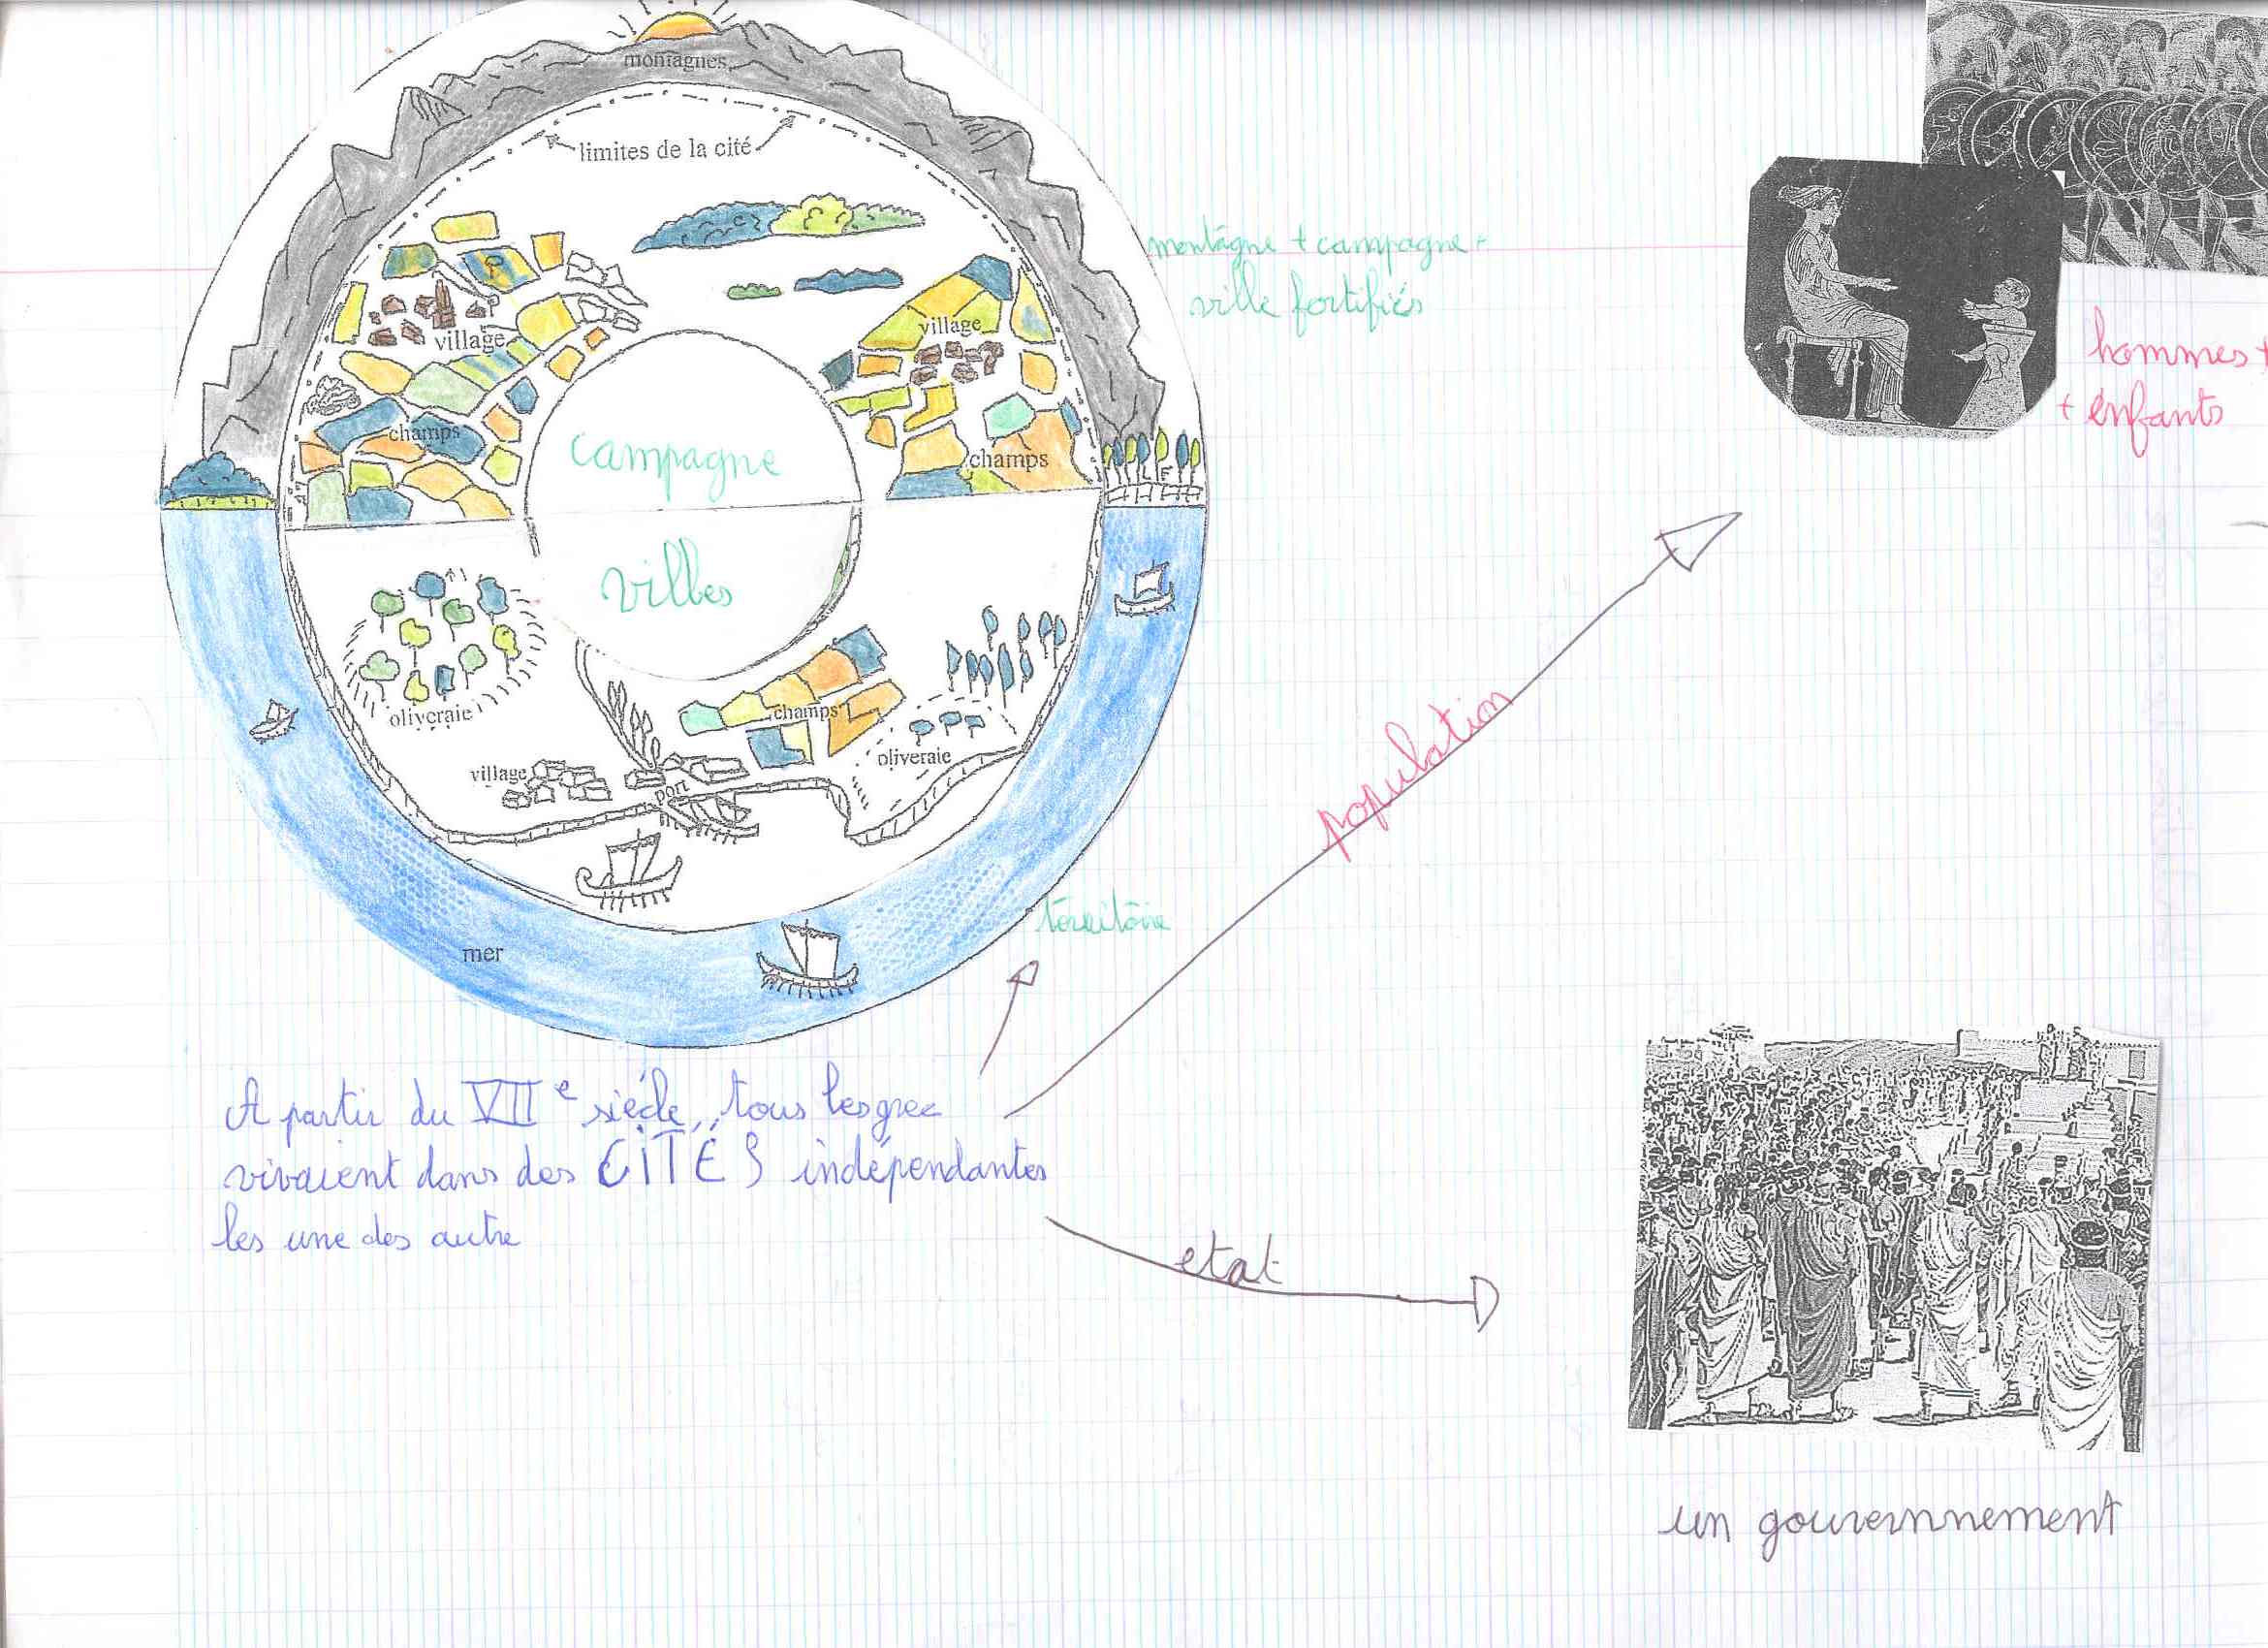 montagnes
limites de la cité
village
village
champs
champs
campagne
villes
oliveraie
champs
oliveraie
village
port
mer
montagne + campagne +
ville fortifiés
hommes +
+ enfants
population
térritoire
A partir du VIIe siécle, tous les grec
vivaient dans des CITÉS indépendantes
les une des autre
etat
un gouvernnement